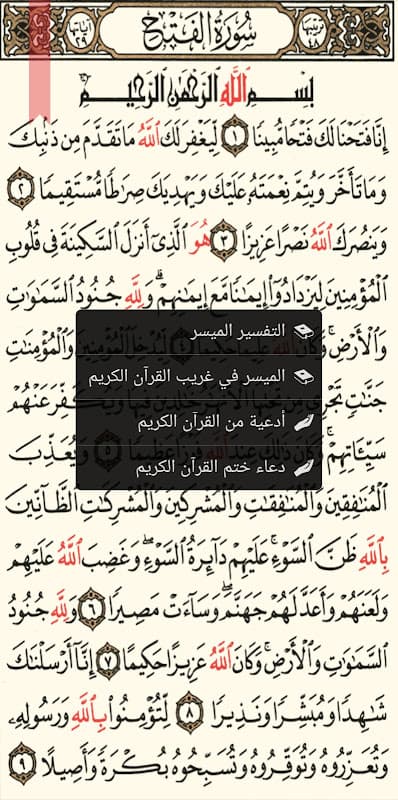 ترتيبها ٤٨ سُورَةُ الفَتْحِ آياتها ٢٩
بِسْمِ اللَّهِ الرَّحْمَٰنِ الرَّحِيمِ
إِنَّا فَتَحْنَا لَكَ فَتْحًا مُّبِينًا ١ لِّيَغْفِرَ لَكَ اللَّهُ مَا تَقَدَّمَ مِن ذَنۢبِكَ
وَمَا تَأَخَّرَ وَيُتِمَّ نِعْمَتَهُۥ عَلَيْكَ وَيَهْدِيَكَ صِرَٰطًا مُّسْتَقِيمًا ٢
وَيَنصُرَكَ اللَّهُ نَصْرًا عَزِيزًا ٣ هُوَ الَّذِىٓ أَنزَلَ السَّكِينَةَ فِى قُلُوبِ
الْمُؤْمِنِينَ لِيَزْدَادُوٓا۟ إِيمَٰنًا مَّعَ إِيمَٰنِهِمْ ۗ وَلِلَّهِ جُنُودُ السَّمَٰوَٰتِ
وَالْأَرْضِ ۚ وَكَانَ وَالْمُؤْمِنَٰتِ
التفسير الميسر
جَنَّٰتٍ تَجْرِى وَيُكَفِّرَ عَنْهُمْ
الميسر في غريب القرآن الكريم
أدعية من القرآن الكريم
سَيِّـَٔاتِهِمْ ۚ وَكَانَ ذَٰلِكَ عِندَ اللَّهِ ٥ وَيُعَذِّبَ
دعاء ختم القرآن الكريم
الْمُنَٰفِقِينَ وَالْمُنَٰفِقَٰتِ وَالْمُشْرِكِينَ وَالْمُشْرِكَٰتِ الظَّآنِّينَ
بِاللَّهِ ظَنَّ السَّوْءِ ۚ عَلَيْهِمْ دَآئِرَةُ السَّوْءِ ۖ وَغَضِبَ اللَّهُ عَلَيْهِمْ
وَلَعَنَهُمْ وَأَعَدَّ لَهُمْ جَهَنَّمَ ۖ وَسَآءَتْ مَصِيرًا ٦ وَلِلَّهِ جُنُودُ
السَّمَٰوَٰتِ وَالْأَرْضِ ۚ وَكَانَ اللَّهُ عَزِيزًا حَكِيمًا ٧ إِنَّآ أَرْسَلْنَٰكَ
شَٰهِدًا وَمُبَشِّرًا وَنَذِيرًا ٨ لِّتُؤْمِنُوا۟ بِاللَّهِ وَرَسُولِهِۦ
وَتُعَزِّرُوهُ وَتُوَقِّرُوهُ وَتُسَبِّحُوهُ بُكْرَةً وَأَصِيلًا ٩